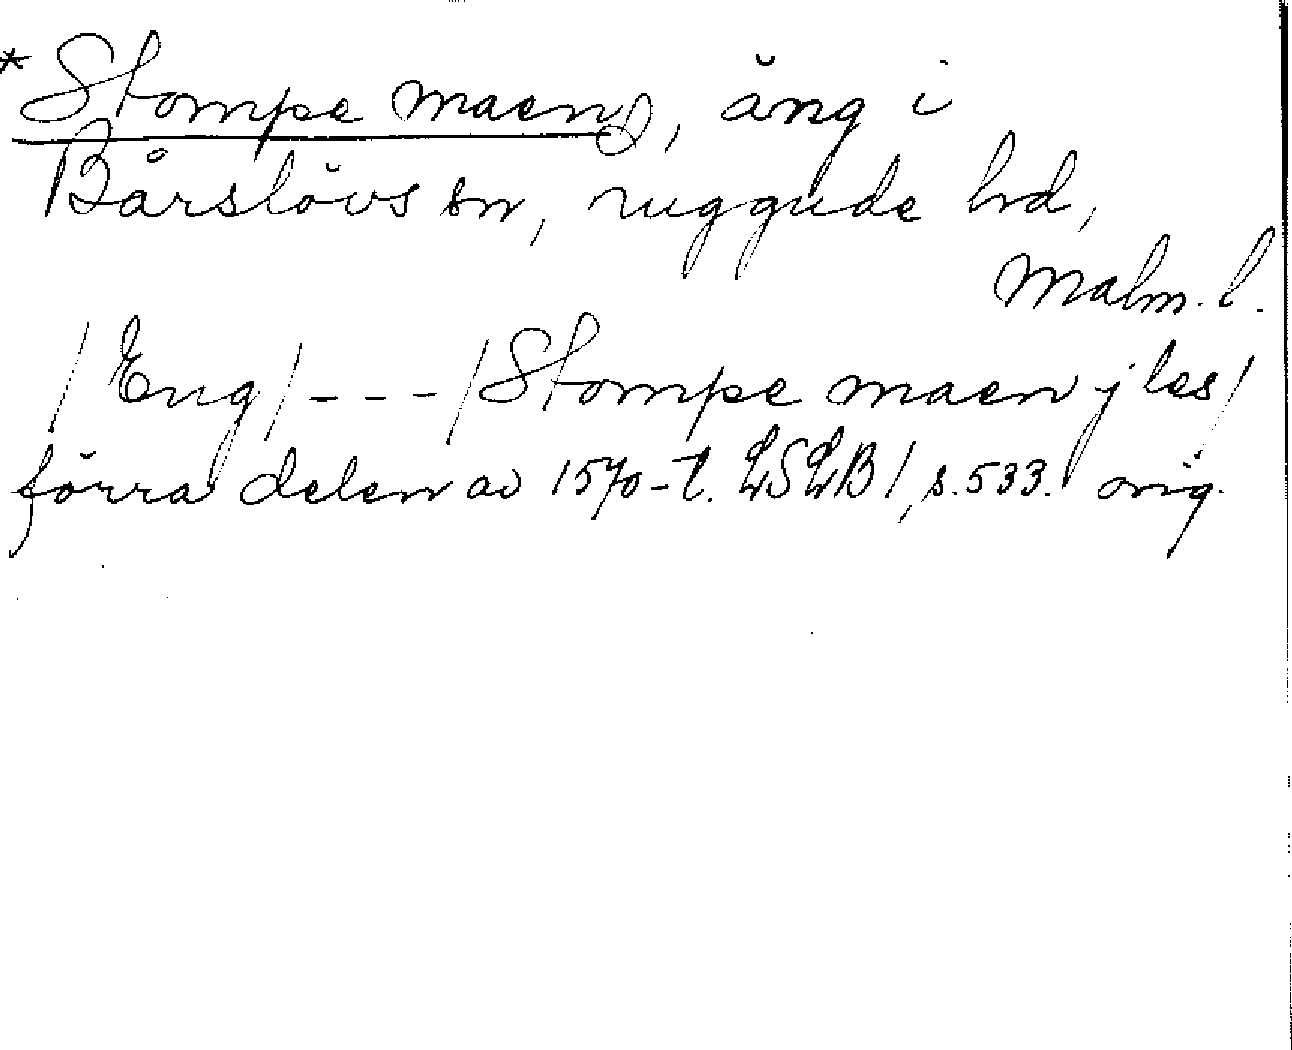 * Stompe maen, äng i
Bårslövs sn, Luggude hd,
Malm. l.
/Eng/ --- /Stompe maen j les/
förra delen av 1570-t. LSLB I, s. 533. orig.